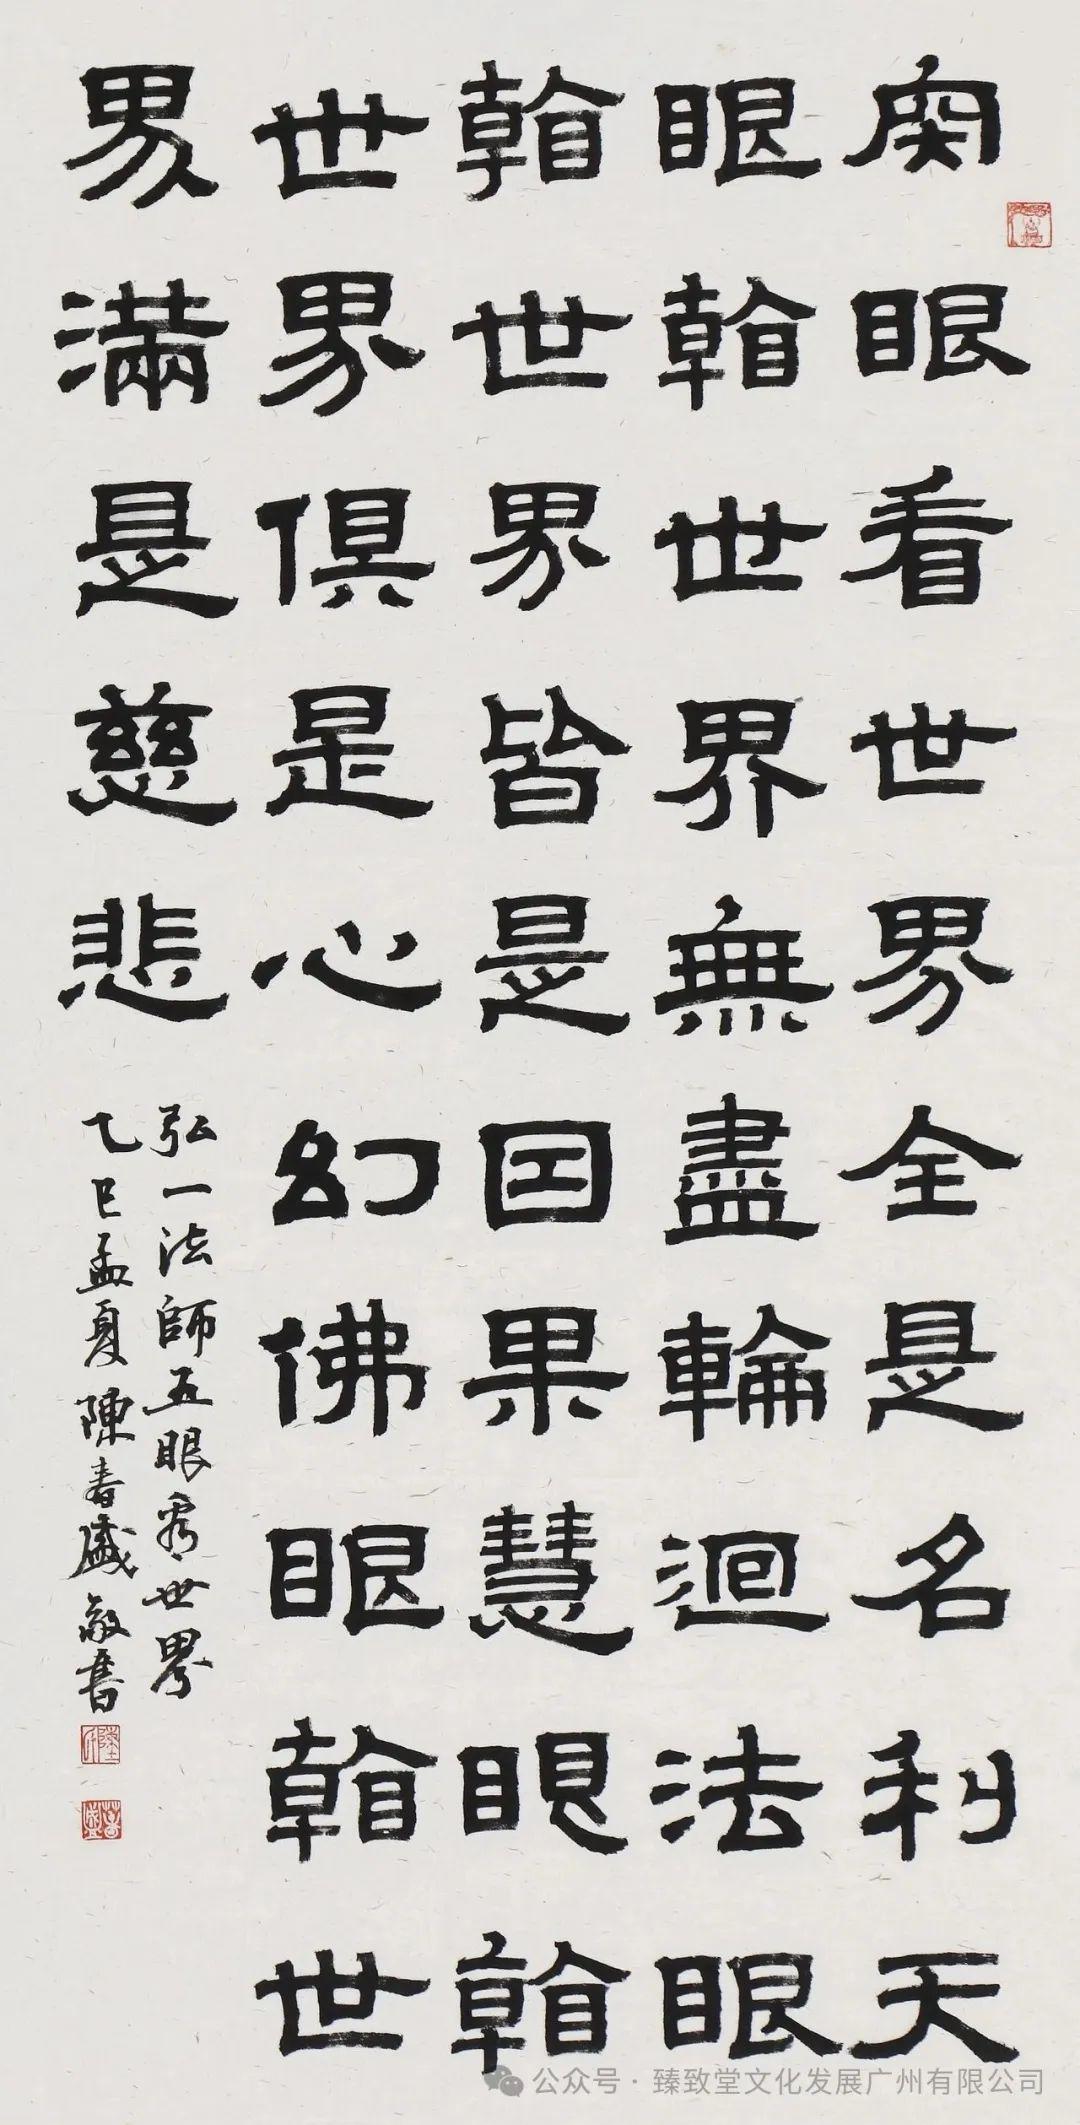 肉眼看世界全是名利天
眼𥋙世界無盡輪迴法眼
𥋙世界皆是因果慧眼𥋙
世界俱是心幻佛眼𥋙世
界滿是慈悲
弘一法師五眼看世界
乙巳孟夏陳春盛敬書
公众号·臻致堂文化发展广州有限公司